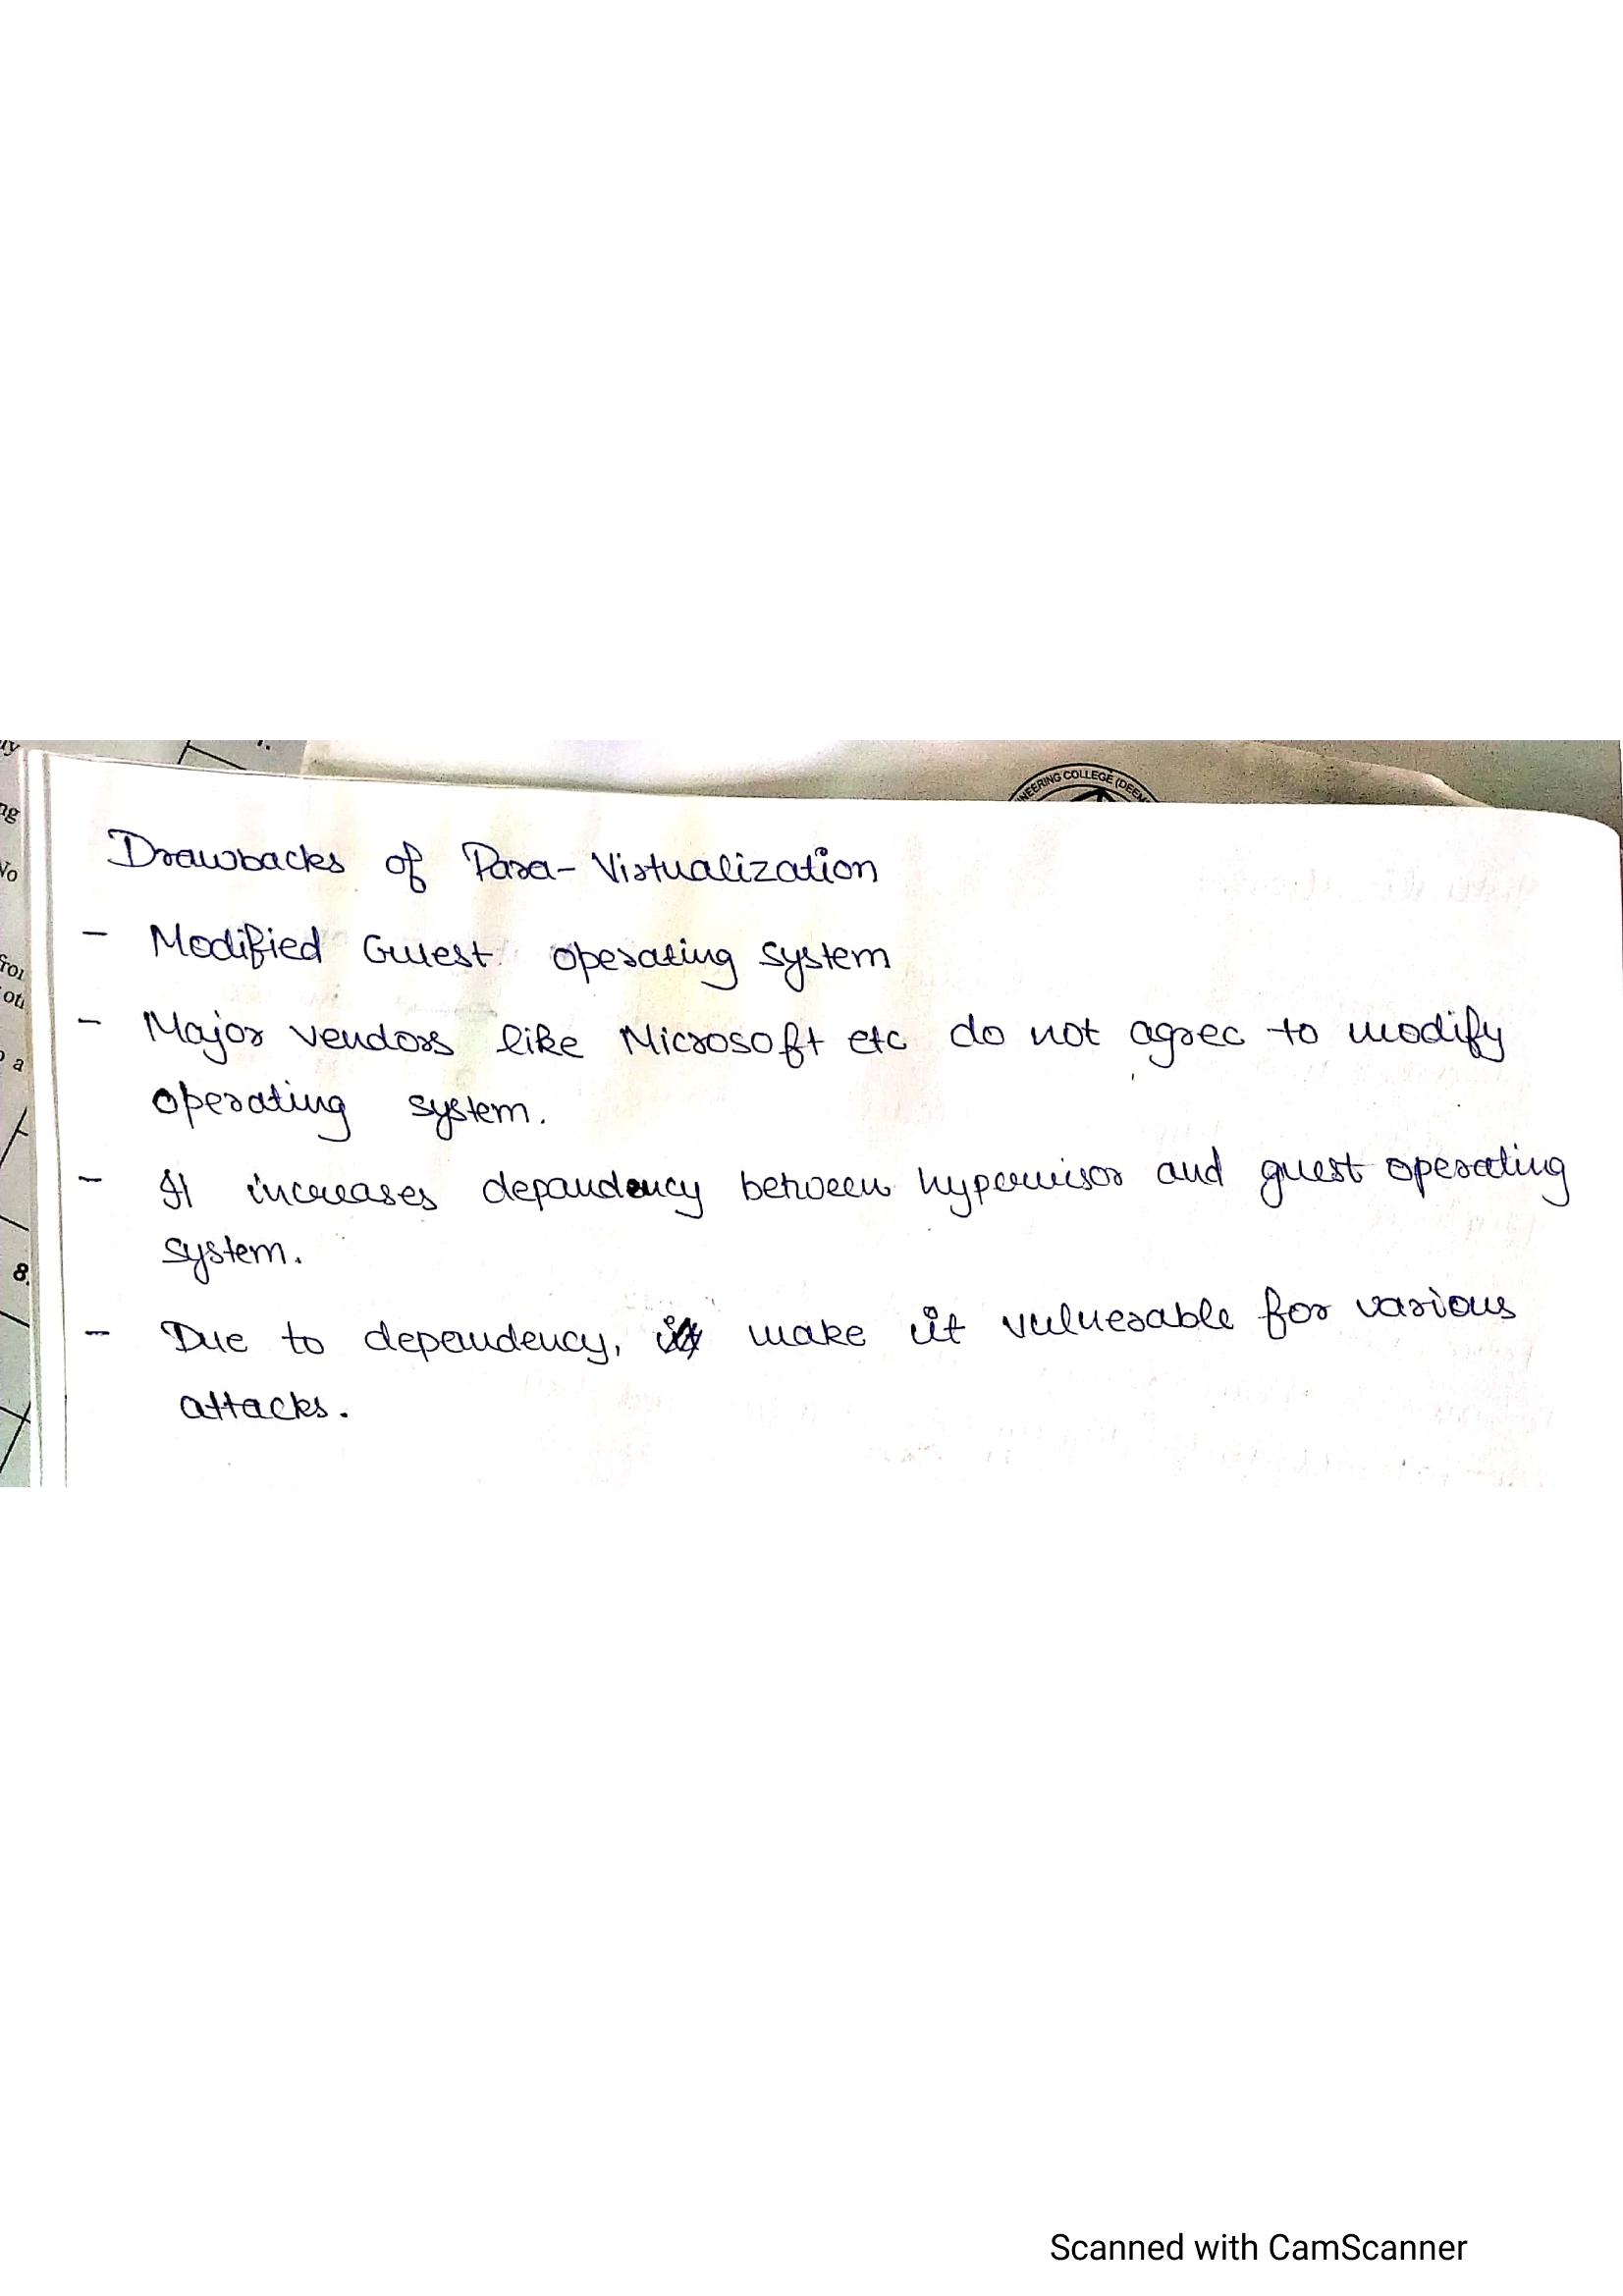 NEERING COLLEGE (DEEM
Drawbacks of Para-Virtualization
- Modified Guest operating system
- Major vendors like Microsoft etc do not agree to modify
operating system.
- It increases dependency between hypervisor and guest operating
system.
- Due to dependency, it make it vulnerable for various
attacks.
8.
Scanned with CamScanner